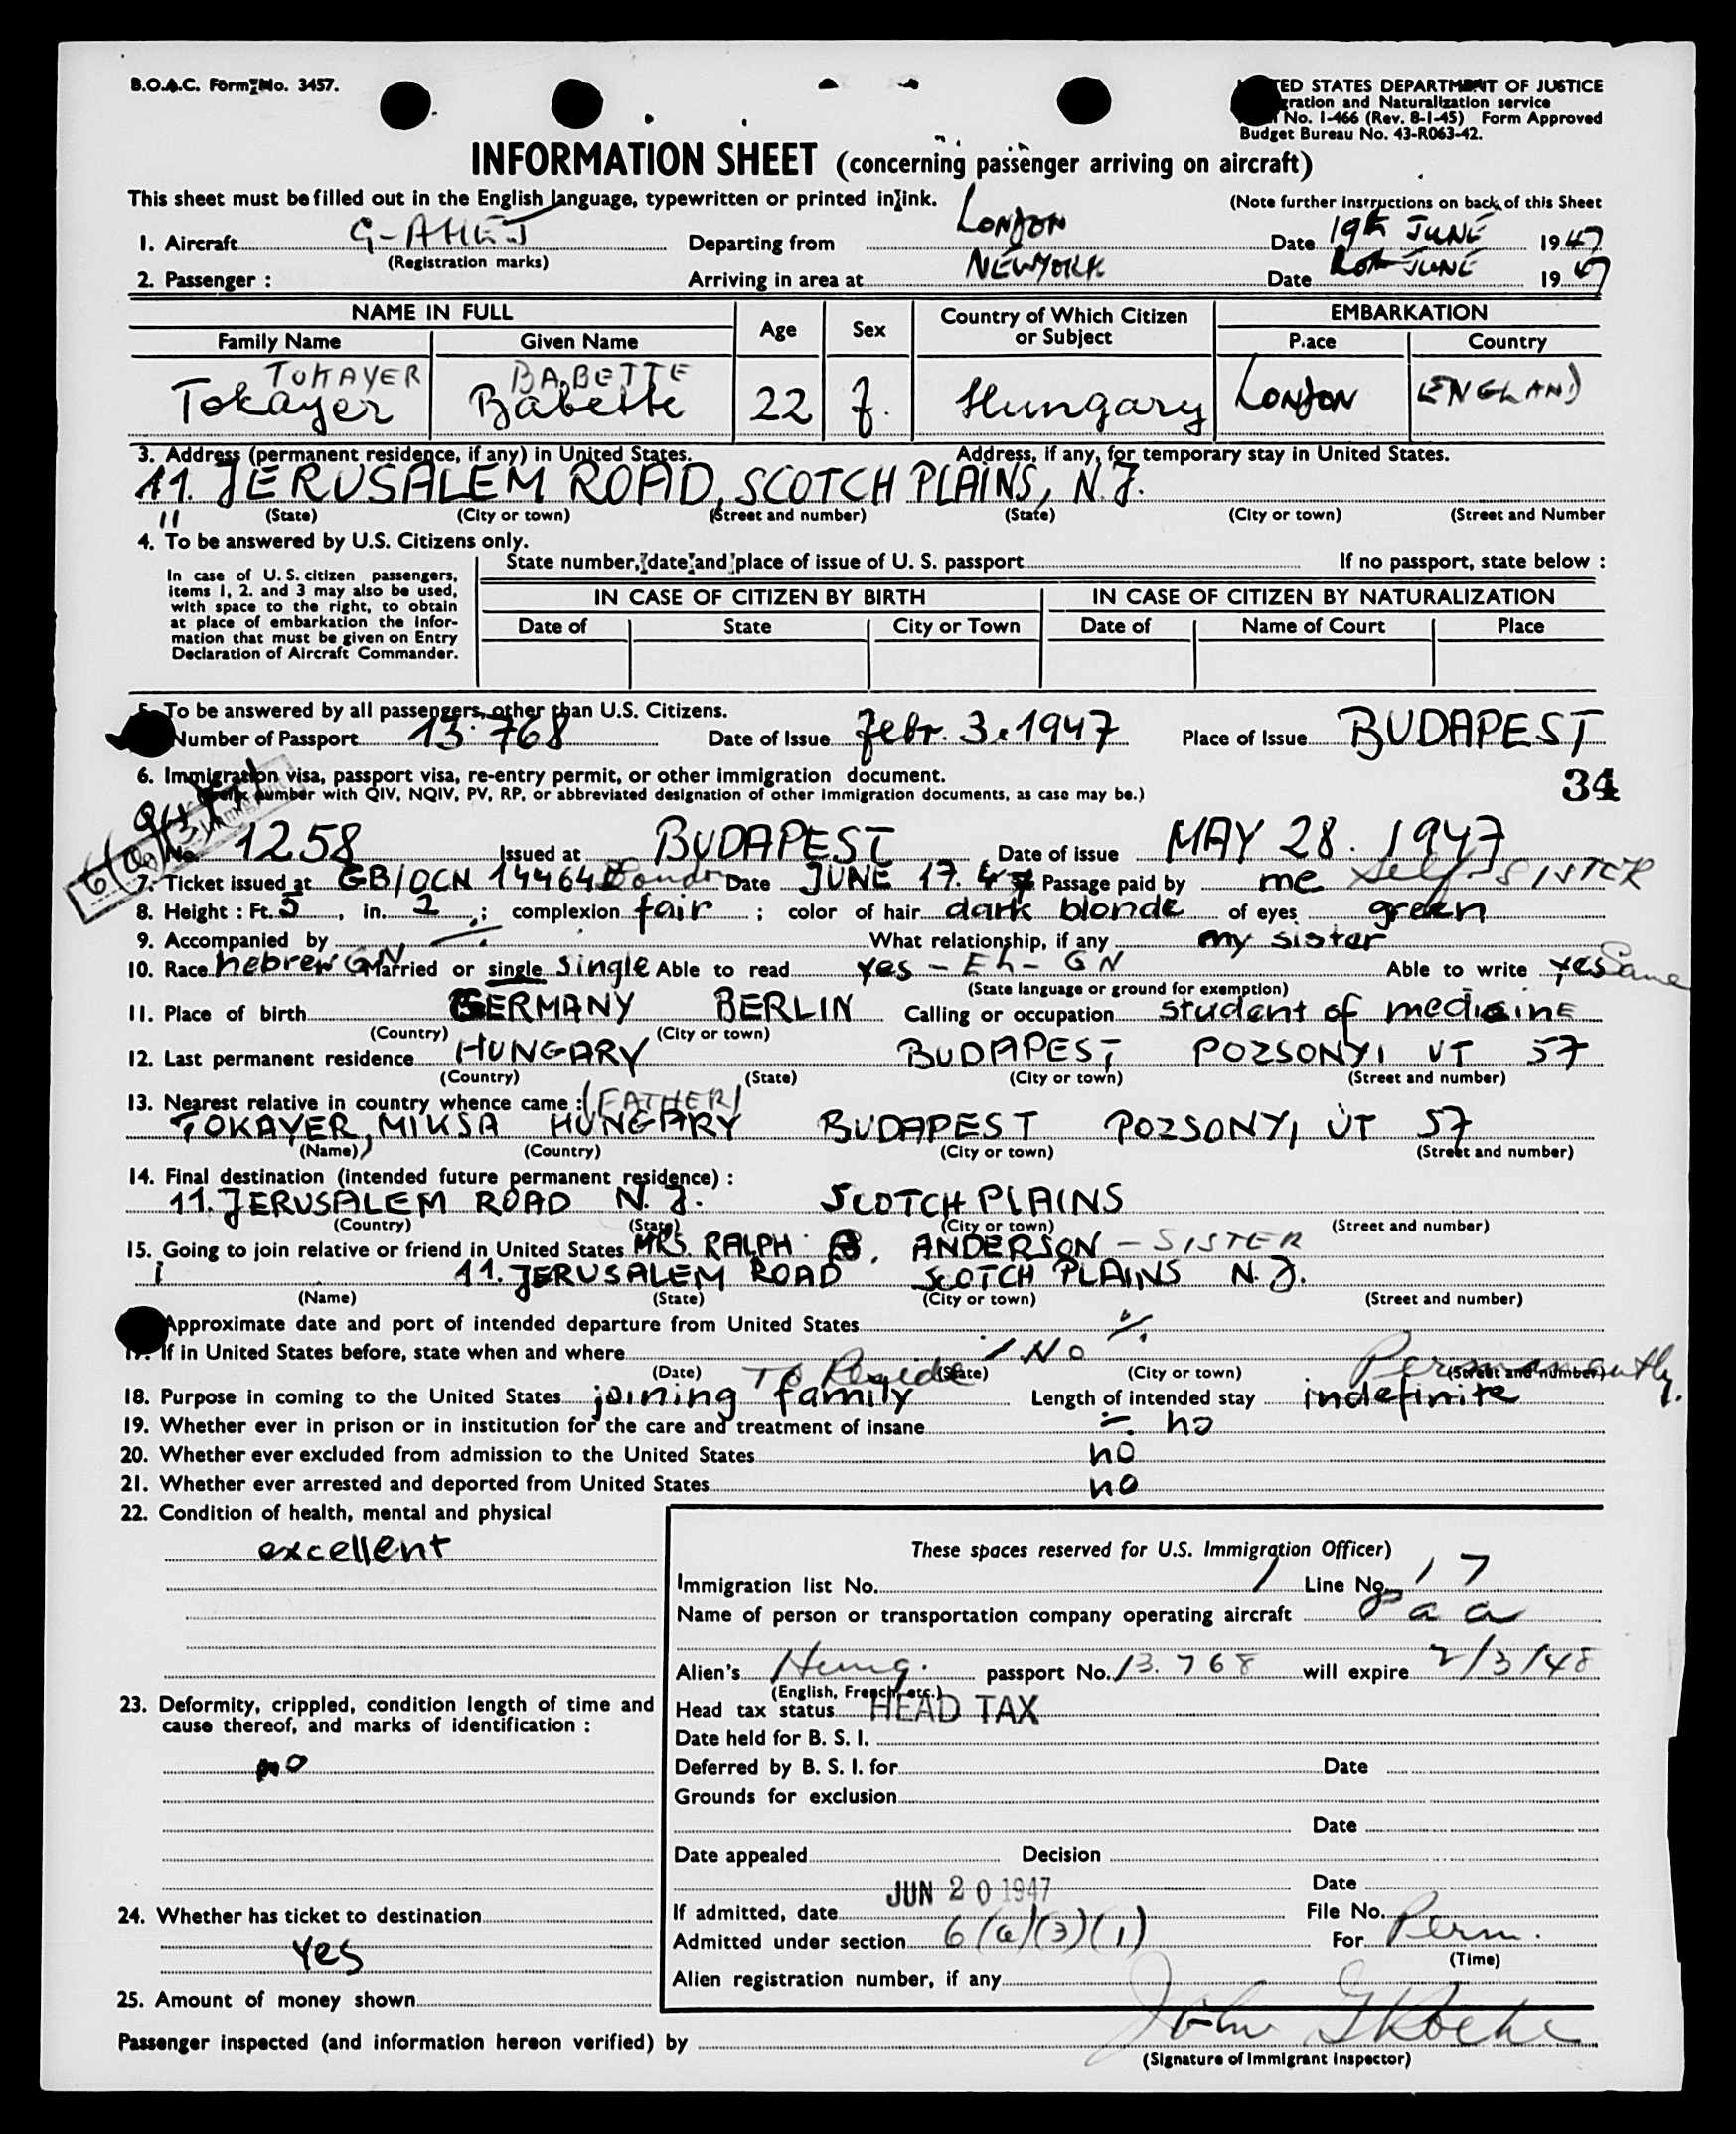 B.O.A.C. Form No. 3457.
TED STATES DEPARTMENT OF JUSTICE
gration and Naturalization service
No. I-466 (Rev. 8-1-45) Form Approved
Budget Bureau No. 43-R063-42.
INFORMATION SHEET (concerning passenger arriving on aircraft)
This sheet must be filled out in the English language, typewritten or printed in ink.
(Note further instructions on back of this Sheet
1. Aircraft G-AHEJ Departing from LONDON Date 19th JUNE 1947
(Registration marks)
2. Passenger : Arriving in area at NEWYORK Date JUNE 1947
NAME IN FULL Age Sex Country of Which Citizen or Subject EMBARKATION
Family Name Given Name Place Country
TOKAYER BABETTE
Tokayer Babette 22 f. Hungary LONDON ENGLAND
3. Address (permanent residence, if any) in United States. Address, if any, for temporary stay in United States.
11. JERUSALEM ROAD, SCOTCH PLAINS, N.J.
11 (State) (City or town) (Street and number) (State) (City or town) (Street and Number
4. To be answered by U.S. Citizens only.
State number, date and place of issue of U. S. passport If no passport, state below :
In case of U. S. citizen passengers,
items 1, 2. and 3 may also be used,
with space to the right, to obtain
at place of embarkation the infor-
mation that must be given on Entry
Declaration of Aircraft Commander.
IN CASE OF CITIZEN BY BIRTH IN CASE OF CITIZEN BY NATURALIZATION
Date of State City or Town Date of Name of Court Place
5. To be answered by all passengers, other than U.S. Citizens.
Number of Passport 13.768 Date of Issue Febr. 3. 1947 Place of Issue BUDAPEST
6. Immigration visa, passport visa, re-entry permit, or other immigration document.
34
number with QIV, NQIV, PV, RP, or abbreviated designation of other immigration documents, as case may be.)
No. 1258 Issued at BUDAPEST Date of issue MAY 28. 1947
7. Ticket issued at GB/OCN 144640 London Date JUNE 17. 47 Passage paid by me Self-SISTER
8. Height : Ft. 5 , in. 2 ; complexion fair ; color of hair dark blonde of eyes green
9. Accompanied by What relationship, if any my sister
10. Race hebrew GN Married or single single Able to read yes - Eh - GN Able to write yes Same
(State language or ground for exemption)
11. Place of birth GERMANY BERLIN Calling or occupation student of medicine
(Country) (City or town)
12. Last permanent residence HUNGARY BUDAPEST POZSONYI UT 57
(Country) (State) (City or town) (Street and number)
13. Nearest relative in country whence came : (FATHER)
TOKAYER, MIKSA HUNGARY BUDAPEST POZSONYI ÚT 57
(Name) (Country) (City or town) (Street and number)
14. Final destination (intended future permanent residence) :
11. JERUSALEM ROAD N. J. SCOTCH PLAINS
(Country) (State) (City or town) (Street and number)
15. Going to join relative or friend in United States MRS. RALPH ANDERSON - SISTER
11. JERUSALEM ROAD SCOTCH PLAINS N. J.
(Name) (State) (City or town) (Street and number)
Approximate date and port of intended departure from United States
17. If in United States before, state when and where No
(Date) (State) (City or town) (Street and number)
To Reside Permanently.
18. Purpose in coming to the United States joining family Length of intended stay indefinite
19. Whether ever in prison or in institution for the care and treatment of insane no
20. Whether ever excluded from admission to the United States no
21. Whether ever arrested and deported from United States no
22. Condition of health, mental and physical
excellent
These spaces reserved for U.S. Immigration Officer)
Immigration list No. 1 Line No. 17
Name of person or transportation company operating aircraft paa
Alien's Hung. passport No. 13.768 will expire 2/3/48
(English, French, etc.)
23. Deformity, crippled, condition length of time and
cause thereof, and marks of identification :
no
Head tax status HEAD TAX
Date held for B. S. I.
Deferred by B. S. I. for Date
Grounds for exclusion
Date
Date appealed Decision
Date
JUN 20 1947
24. Whether has ticket to destination
yes
If admitted, date File No.
Admitted under section 6(a)(3)(1) For Perm.
(Time)
Alien registration number, if any
25. Amount of money shown
Passenger inspected (and information hereon verified) by John G
(Signature of Immigrant Inspector)